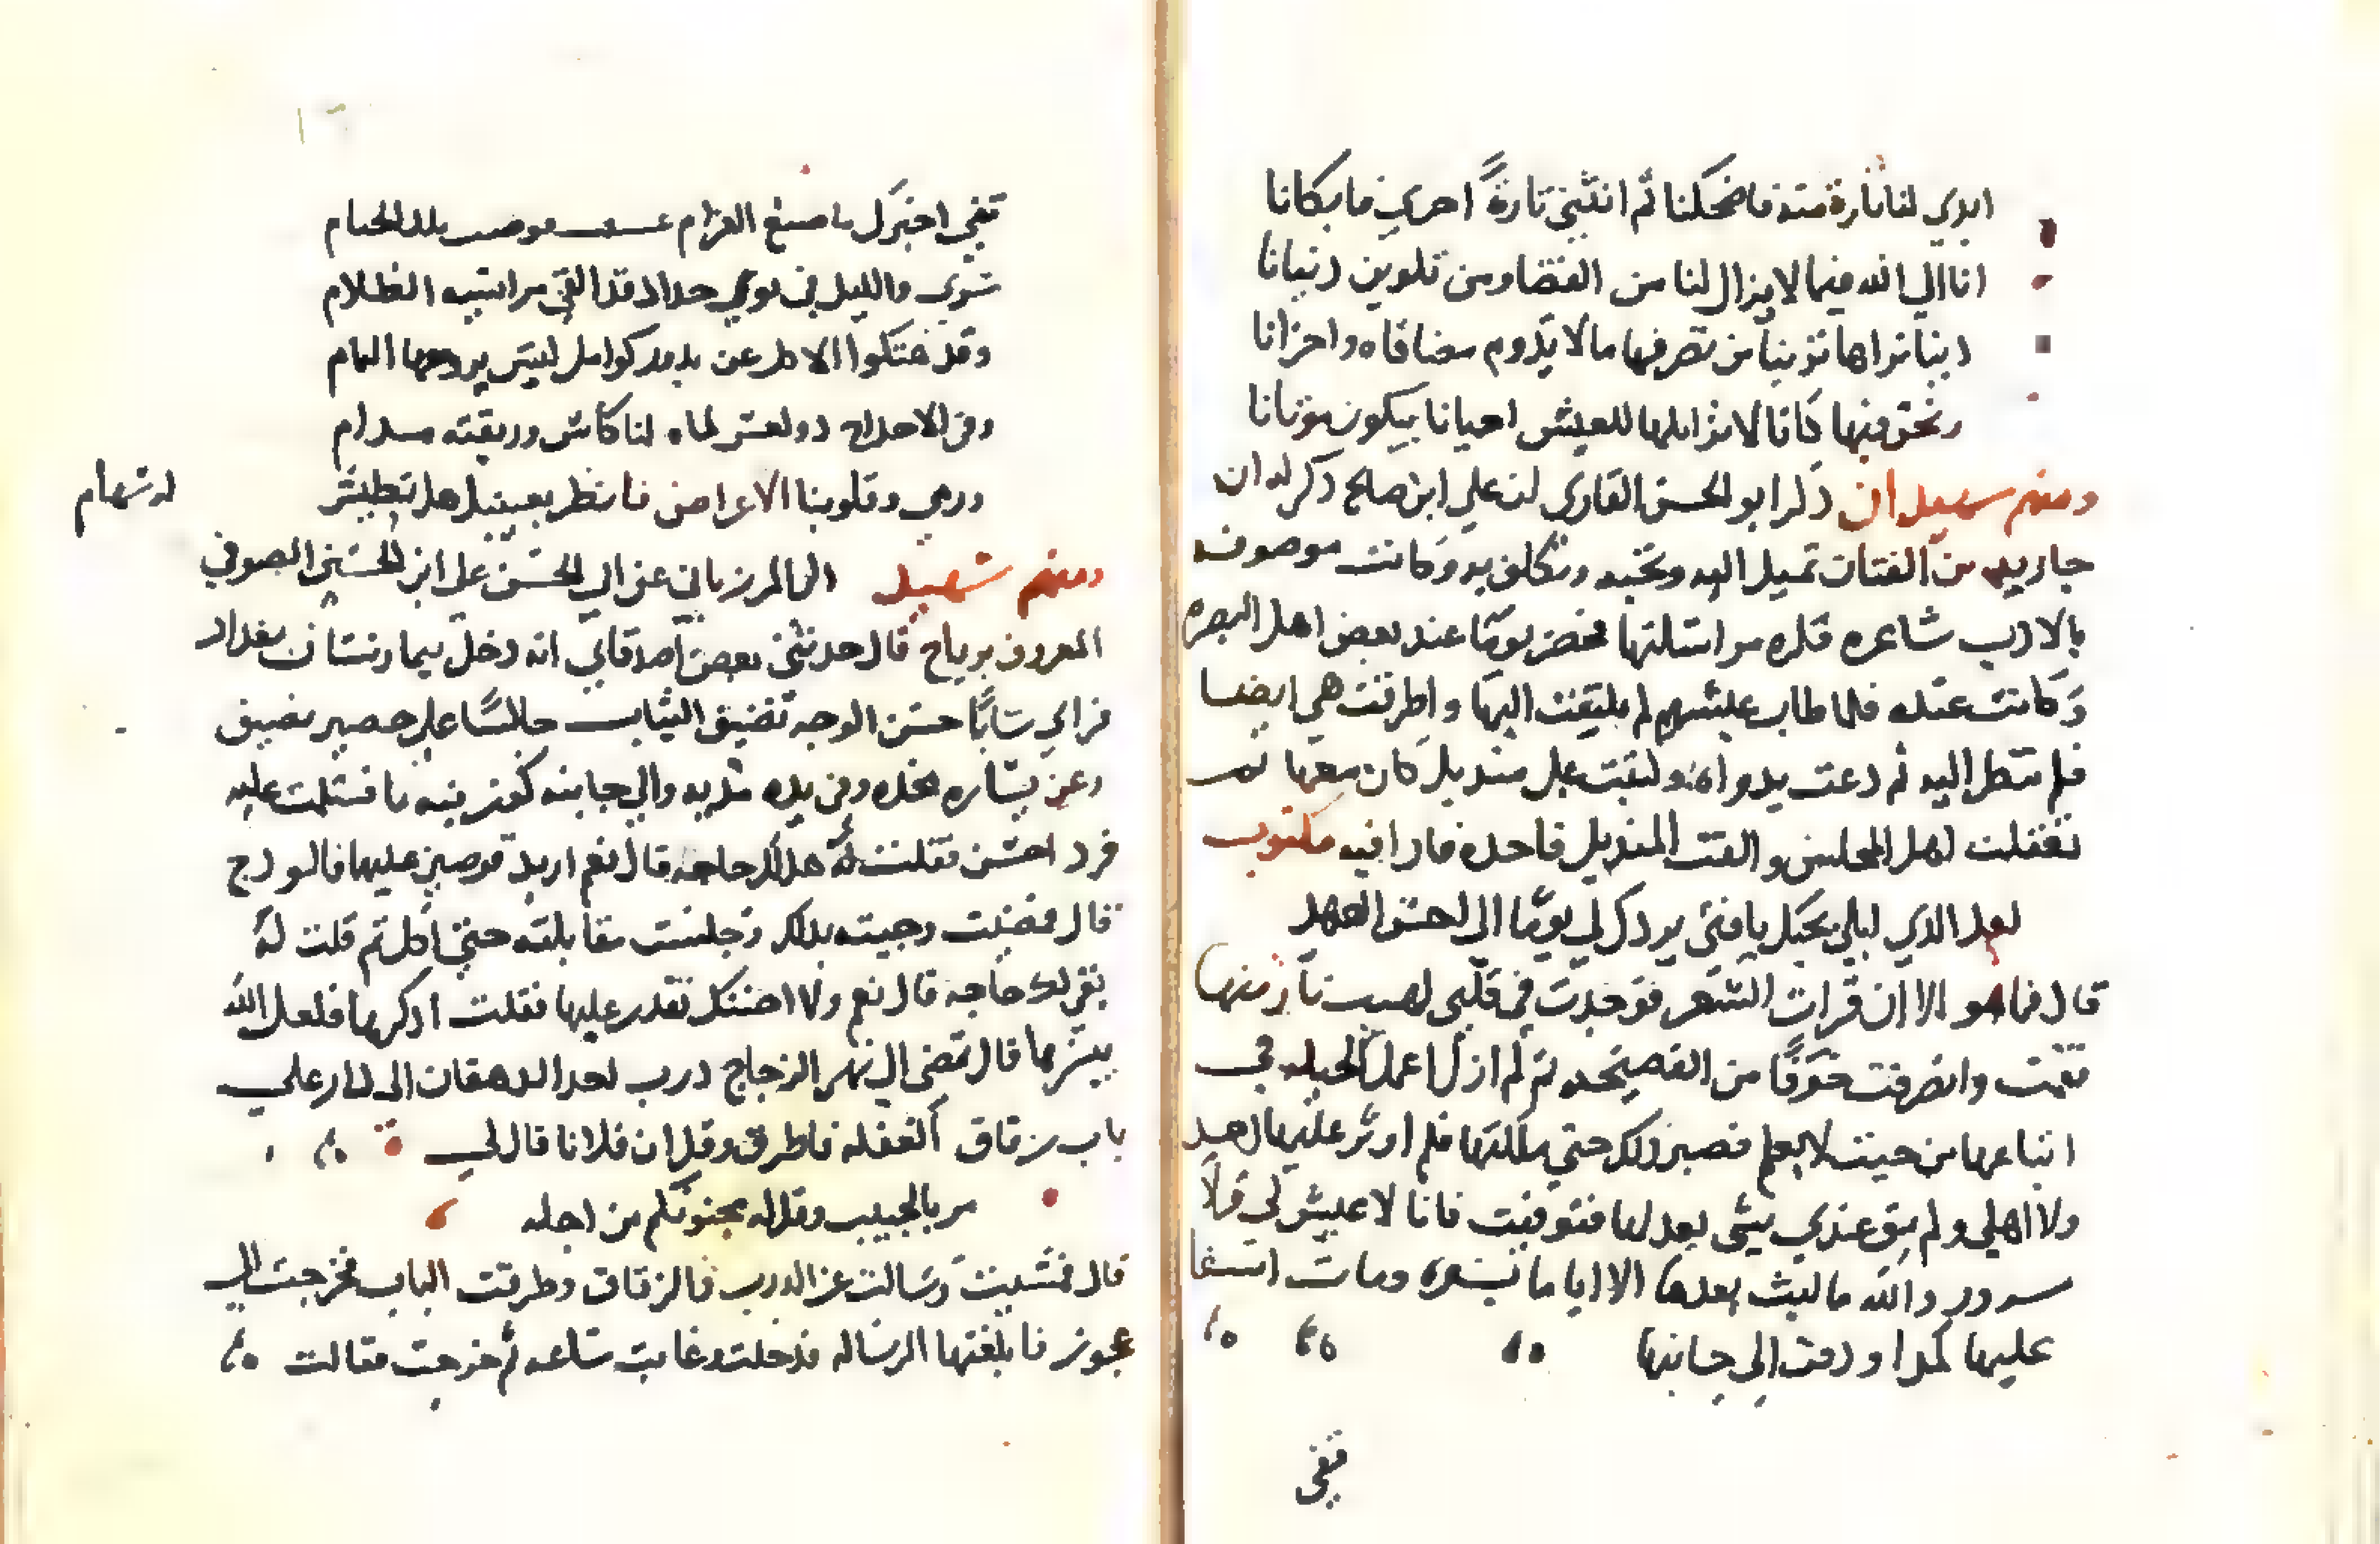 ابدي لنا تارة منه فاضحكنا ثم انثنى تارةً اخرى فابكانا
انا الى الله فيما لا يزال لنا من القضا ومن تلوين دنيانا
دينا نراها ترينا من تصرفها ما لا يدوم مصافاه واحزانا
ونحن فيها كانا لا نزايلها للعيش احيانا يبكون موتانا
ومنهم شهيدان ذكر ابو الحسن القاري ان علي ابن صالح ذكر له ان
جاريه من القينات تميل اليه وتحبه وتكلف به وكانت موصوفه
بالادب شاعره فكره مواصلتها فحضر يومًا عند بعض اهل البصره
وكانت عنده فلما طاب عيشهم لم يلتفت اليها واطرقت هي ايضا
فلم تنظر اليه ثم دعت بدواه وكتبت على منديل كان معها ثم
تغفلت اهل المجلس والقت المنديل فاخده فادا فيه مكتوب
لعل الذي يبلي بحبك يا فتى يردك لي يومًا الى احسن العهد
قال فما هو الا ان قرات الشعر فوجدت في قلبي لهيب نار منها
فقمت وانصرفت خوفًا من الفضيحه ثم لم ازل اعمل الحيله في
ابتياعها من حيث لا يعلم فصبر ذلك حتى ملكتها فلم اوثر عليها احد
ولا اهلي ولم يبق عندي شي يعدلها فتوفيت فانا لا عيش لي ولا
سرور والله ما لبث بعدها الا اياما يسيره ومات اسفا
عليها كمدا ودفن الى جانبها
قفي
قفي اخبرك ما صنع الغرام بلد الحمام
سرى والليل في ثوبي حداد قد القى مراسيه الظلام
وقد هتكوا الاطر عن بدور كوامل ليس
وفي الاحداج دو لعس لماه لنا كاس وريقته مدام
ورمى وقلوبنا الاعراض فانظر بعينيك هل تطيش
له سهام
ومنهم شهيد انا المرزباني عن ابي الحسن علي ابن الحسين الصوفي
المعروف برباح قال حدثني بعض اصدقائي انه دخل بيمارستان بغداد
فراى شابًّا حسن الوجه نضيف الثياب جالسًا على حصير نضيف
وعن يساره مخده وفي يده مديه والى جانبه كوز فيه ما فسلمت عليه
فرد احسن فقلت له هل لك حاجه قال نعم اريد قرصين عليها فالودج
قال فمضيت وجيته بدلك وجلست مقابلته حتى اكل ثم قلت له
بقي لك حاجه قال نعم ولا اضنك تقدر عليها فقلت ادكرها فلعل الله
ييسرها قال تمضي الى نهر الزجاج درب احد الدهقان الى دار على
باب زقاق الغفله فاطرق وقل ان فلانا قال لي
مر بالحبيب وقل له مجنونكم من اجله
قال فمشيت وسالت عن الدرب فالزقاق وطرقت الباب فخرجت الي
عجوز فابلغتها الرساله فدخلت وغابت ساعه ثم خرجت فقالت